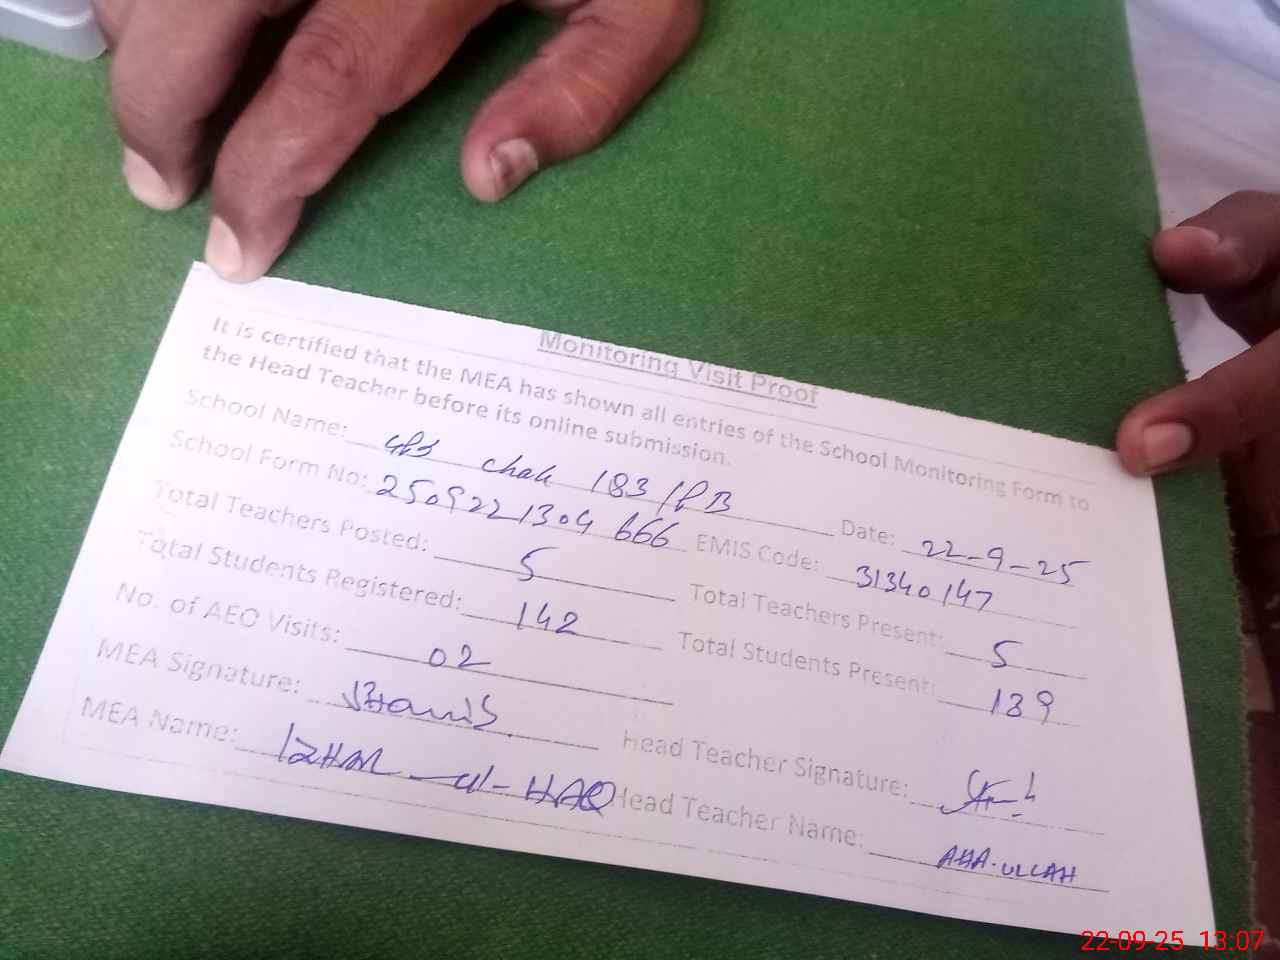 Monitoring Visit Proof
It is certified that the MEA has shown all entries of the School Monitoring Form to
the Head Teacher before its online submission.
School Name: GPS Chak 183/PB Date: 22-9-25
School Form No: 2509221304666 EMIS Code: 31340147
Total Teachers Posted: 5 Total Teachers Present: 5
Total Students Registered: 142 Total Students Present: 139
No. of AEO Visits: 02
MEA Signature: Head Teacher Signature:
MEA Name: IZHAR-ul-HAQ Head Teacher Name: ULLAH
22-09-25 13:07